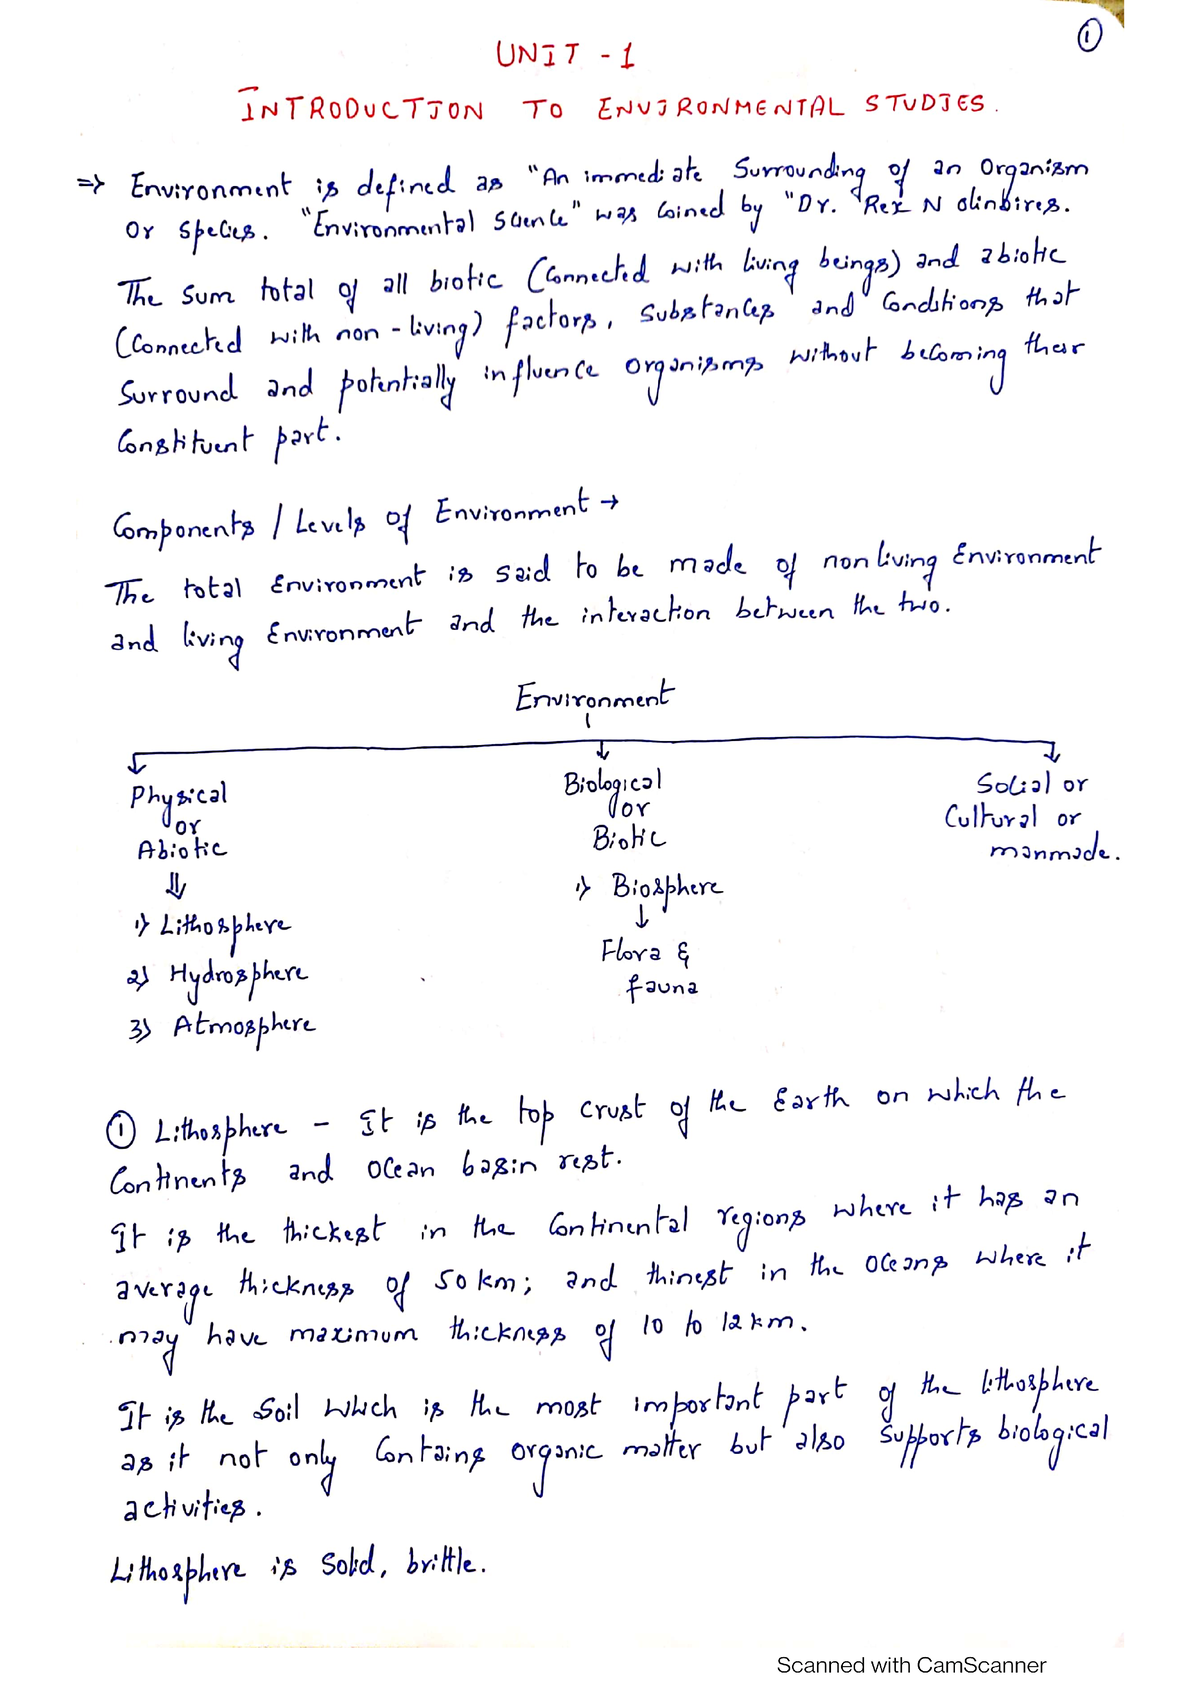 ①
UNIT - 1
INTRODUCTION TO ENVIRONMENTAL STUDIES.
=> Environment is defined as "An immediate Surrounding of an Organism
or species. "Environmental Science" was coined by "Dr. Rex N olinbires.
The sum total of all biotic (Connected with living beings) and abiotic
(Connected with non-living) factors, substances and Conditions that
Surround and potentially influence organisms without becoming their
Constituent part.
Components / Levels of Environment →
The total Environment is said to be made of non living Environment
and living Environment and the interaction between the two.
Environment
Physical
or
Abiotic
⇓
1) Lithosphere
2) Hydrosphere
3) Atmosphere
Biological
or
Biotic
1) Biosphere
↓
Flora &
fauna
Social or
Cultural or
manmade.
① Lithosphere - It is the top crust of the Earth on which the
Continents and ocean basin rest.
It is the thickest in the Continental regions where it has an
average thickness of 50 km; and thinest in the oceans where it
may have maximum thickness of 10 to 12 km.
It is the Soil which is the most important part of the lithosphere
as it not only Contains organic matter but also supports biological
activities.
Lithosphere is Solid, brittle.
Scanned with CamScanner